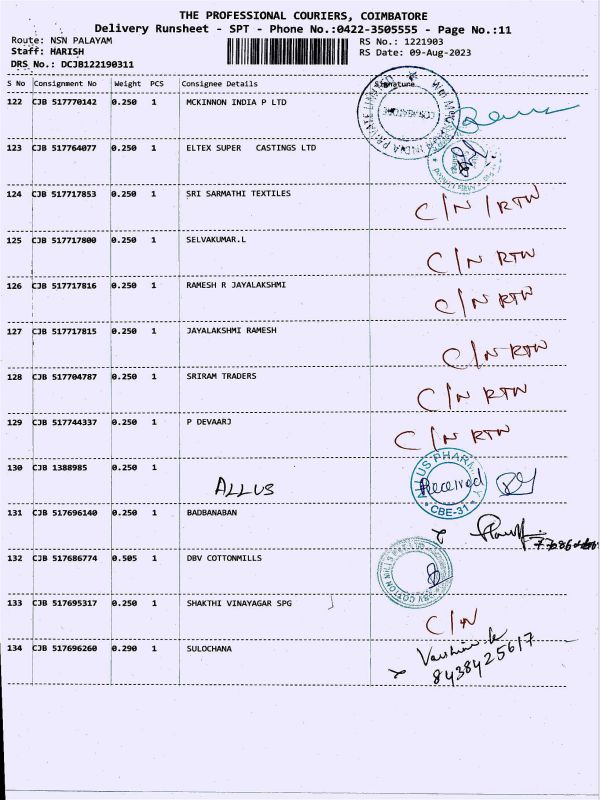 THE PROFESSIONAL COURIERS, COIMBATORE
Delivery Runsheet - SPT - Phone No.:0422-3505555 - Page No.:11
Route: NSN PALAYAM RS No.: 1221903
Staff: HARISH RS Date: 09-Aug-2023
DRS No.: DCJB122190311
S No Consignment No Weight PCS Consignee Details Signature
122 CJB 517770142 0.250 1 MCKINNON INDIA P LTD
123 CJB 517764077 0.250 1 ELTEX SUPER CASTINGS LTD
124 CJB 517717853 0.250 1 SRI SARMATHI TEXTILES C/N/RTN
125 CJB 517717800 0.250 1 SELVAKUMAR.L C/N RTN
126 CJB 517717816 0.250 1 RAMESH R JAYALAKSHMI C/N RTN
127 CJB 517717815 0.250 1 JAYALAKSHMI RAMESH C/N RTN
128 CJB 517704787 0.250 1 SRIRAM TRADERS C/N RTN
129 CJB 517744337 0.250 1 P DEVAARJ C/N RTN
130 CJB 1388985 0.250 1 ALLUS ALLUS PHARMACY Received CBE-31
131 CJB 517696140 0.250 1 BADBANABAN
132 CJB 517686774 0.505 1 DBV COTTONMILLS
133 CJB 517695317 0.250 1 SHAKTHI VINAYAGAR SPG C/N
134 CJB 517696260 0.290 1 SULOCHANA 8438425617